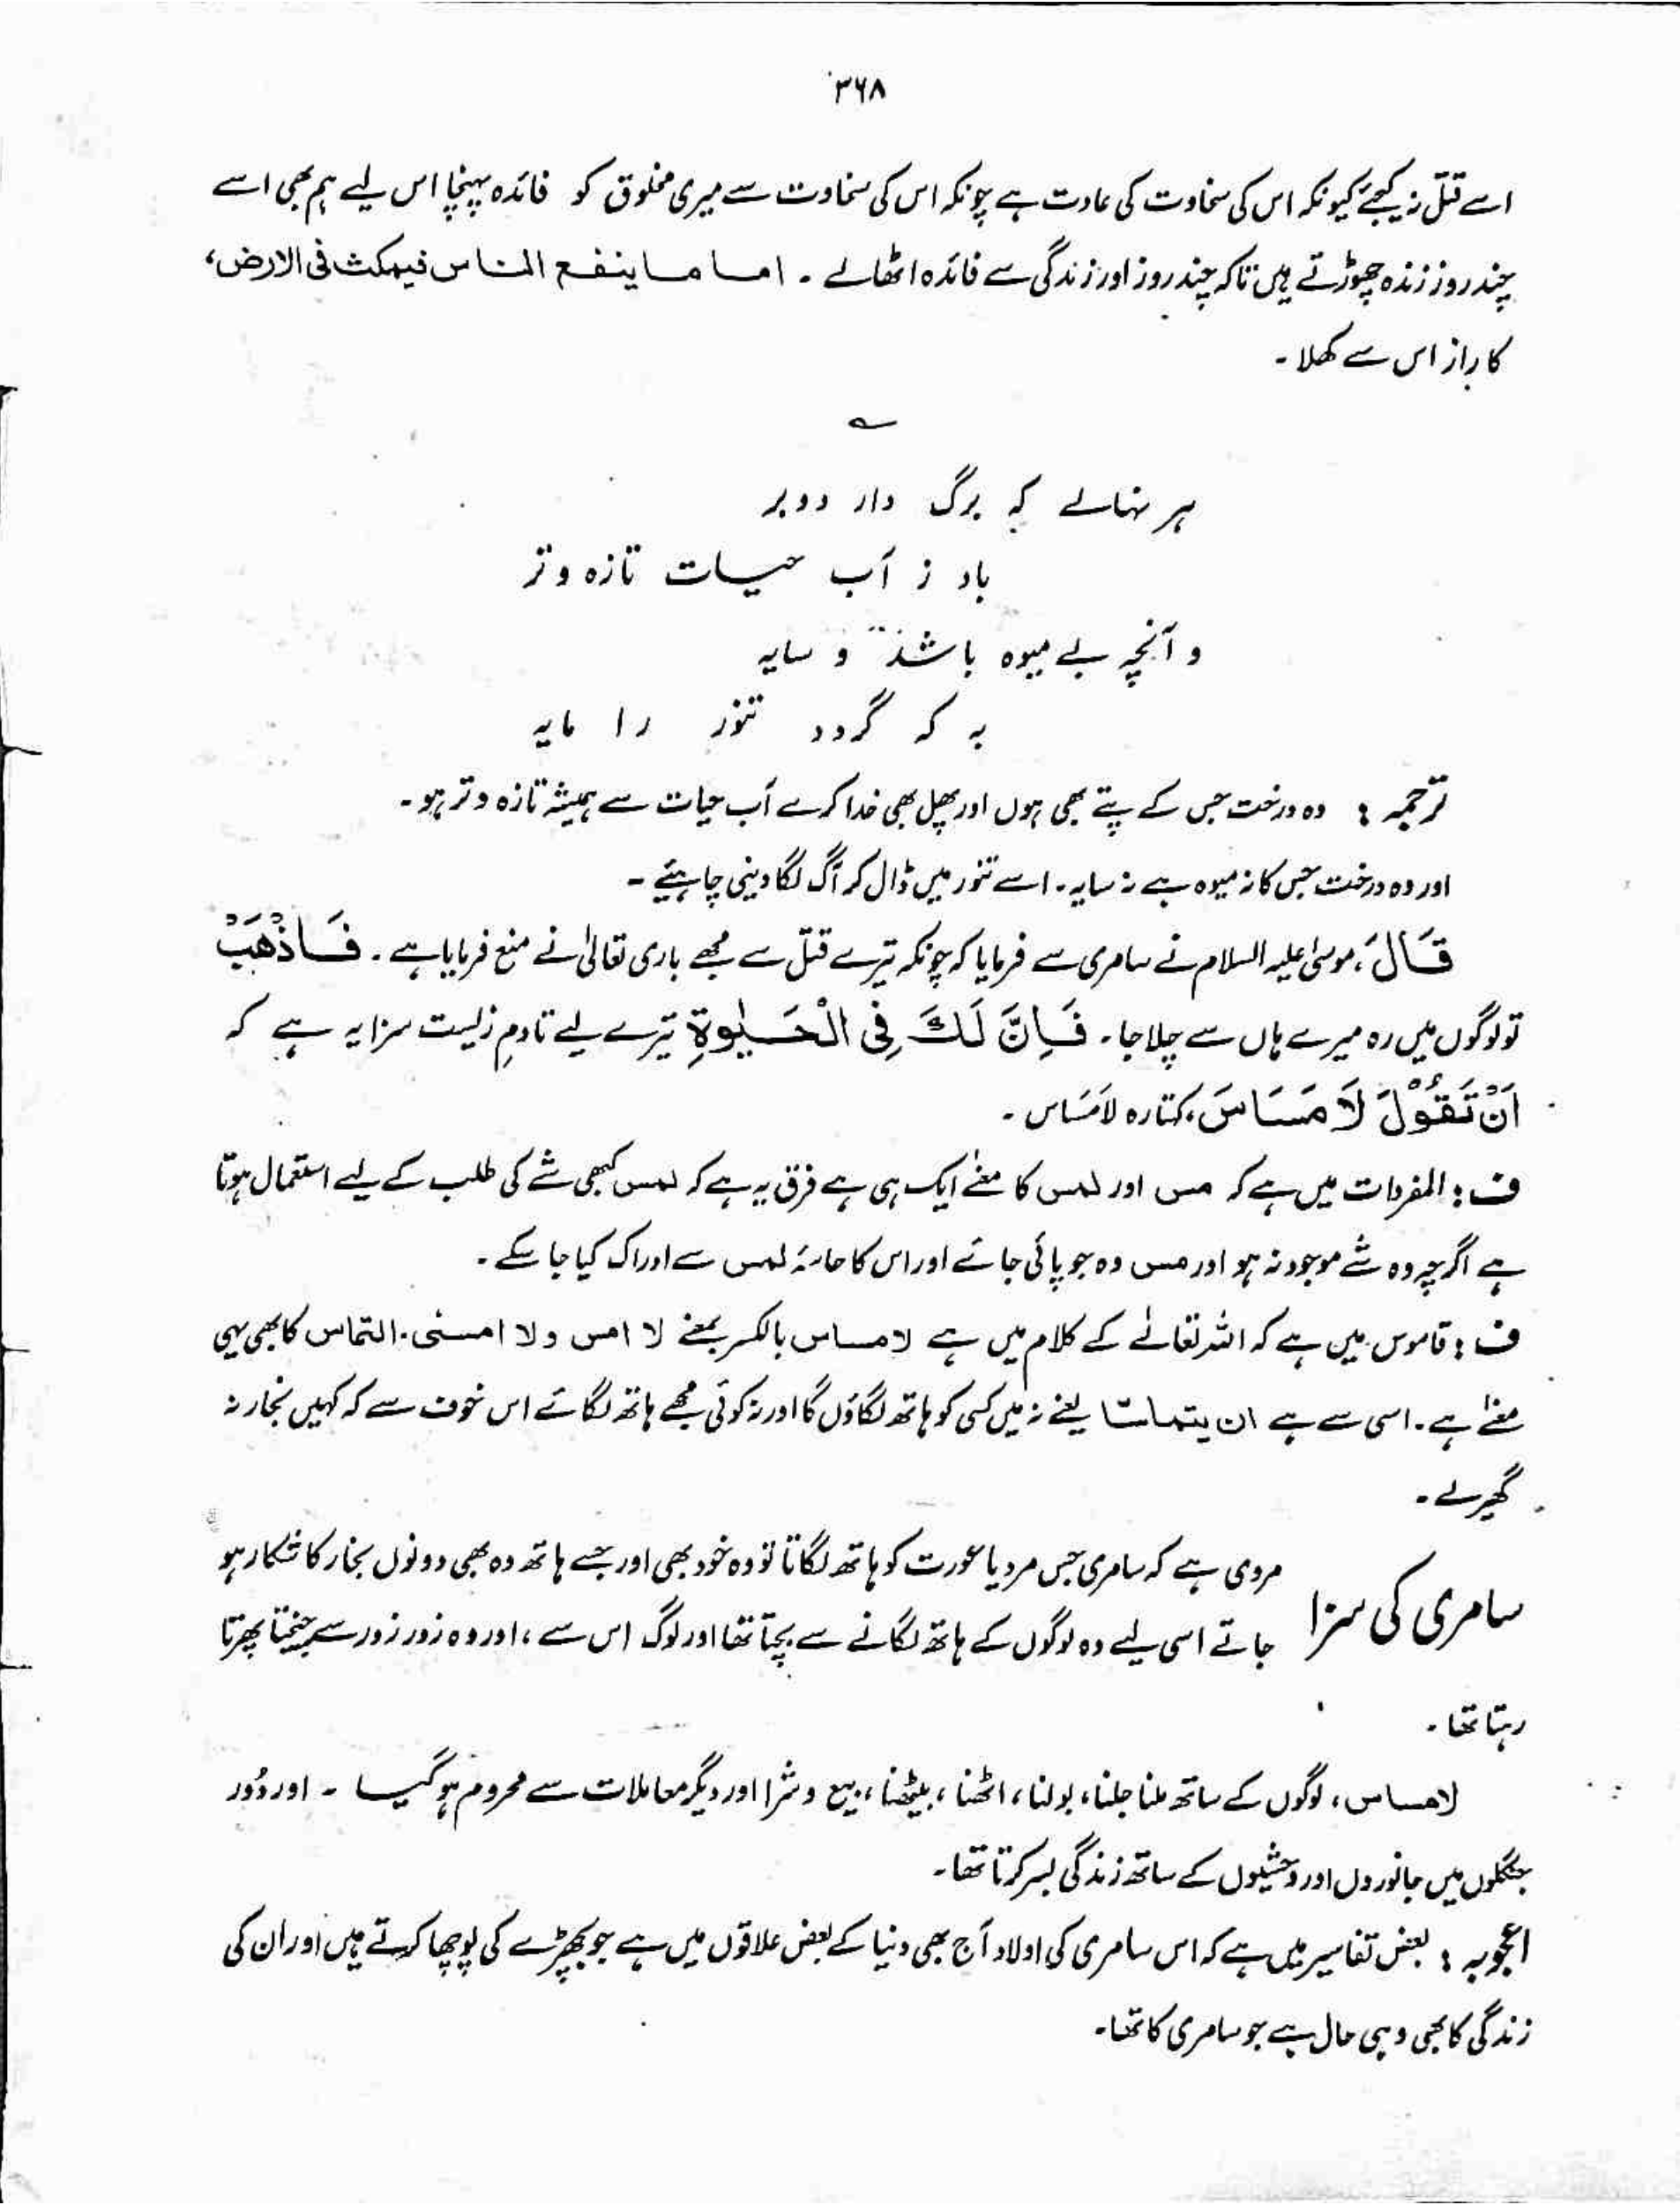 ۳۶۸
اسے قتل نہ کیجئے کیونکہ اس کی سخاوت کی عادت ہے چونکہ اس کی سخاوت سے میری مخلوق کو فائدہ پہنچا اس لیے ہم بھی اسے
چند روز زندہ چھوڑتے ہیں تاکہ چند روز اور زندگی سے فائدہ اٹھالے ۔ اما ما ینفع الناس فیمکث فی الارض،
کا راز اس سے کھلا ۔
؎
ہر نہالے کہ برگ دار دو بر
باد ز آب حیات تازہ و تر
و آنچہ بے میوہ باشد و سایہ
بہ کہ گردد تنور را مایہ
ترجمہ : وہ درخت جس کے پتے بھی ہوں اور پھل بھی خدا کرے آب حیات سے ہمیشہ تازہ و تر ہو ۔
اور وہ درخت جس کا نہ میوہ ہے نہ سایہ ۔ اسے تنور میں ڈال کر آگ لگا دینی چاہیئے ۔
قَالَ، موسیٰ علیہ السلام نے سامری سے فرمایا کہ چونکہ تیرے قتل سے مجھے باری تعالیٰ نے منع فرمایا ہے ۔ فَاذْهَبْ
تو لوگوں میں رہ میرے ہاں سے چلا جا ۔ فَاِنَّ لَكَ فِی الْحَیٰوةِ تیرے لیے تادمِ زیست سزا یہ ہے کہ
اَنْ تَقُوْلَ لَا مَسَاسَ، کہتا رہ لَامَسَاس ۔
ف : المفردات میں ہے کہ مس اور لمس کا معنےٰ ایک ہی ہے فرق یہ ہے کہ لمس کبھی شے کی طلب کے لیے استعمال ہوتا
ہے اگرچہ وہ شے موجود نہ ہو اور مس وہ جو پائی جائے اور اس کا حاسۂ لمس سے ادراک کیا جا سکے ۔
ف : قاموس میں ہے کہ اللہ تعالےٰ کے کلام میں ہے لا مساس بالکسر بمعنے لا امس ولا امسنی ۔ التماس کا بھی یہی
معنےٰ ہے ۔ اسی سے ہے ان یتماسّا یعنے نہ میں کسی کو ہاتھ لگاؤں گا اور نہ کوئی مجھے ہاتھ لگائے اس خوف سے کہ کہیں بخار نہ
گھیر لے ۔
سامری کی سزا مروی ہے کہ سامری جس مرد یا عورت کو ہاتھ لگاتا تو وہ خود بھی اور جسے ہاتھ وہ بھی دونوں بخار کا شکار ہو
جاتے اسی لیے وہ لوگوں کے ہاتھ لگانے سے بچتا تھا اور لوگ اس سے، اور وہ زور زور سے چیختا پھرتا
رہتا تھا ۔
لامساس، لوگوں کے ساتھ ملنا جلنا، بولنا، اٹھنا، بیٹھنا، بیع و شرا اور دیگر معاملات سے محروم ہو گیا ۔ اور دُور
جنگلوں میں جانوروں اور وحشیوں کے ساتھ زندگی بسر کرتا تھا ۔
اعجوبہ : بعض تفاسیر میں ہے کہ اس سامری کی اولاد آج بھی دنیا کے بعض علاقوں میں ہے جو بچھڑے کی پوجا کرتے ہیں اور ان کی
زندگی کا بھی وہی حال ہے جو سامری کا تھا ۔